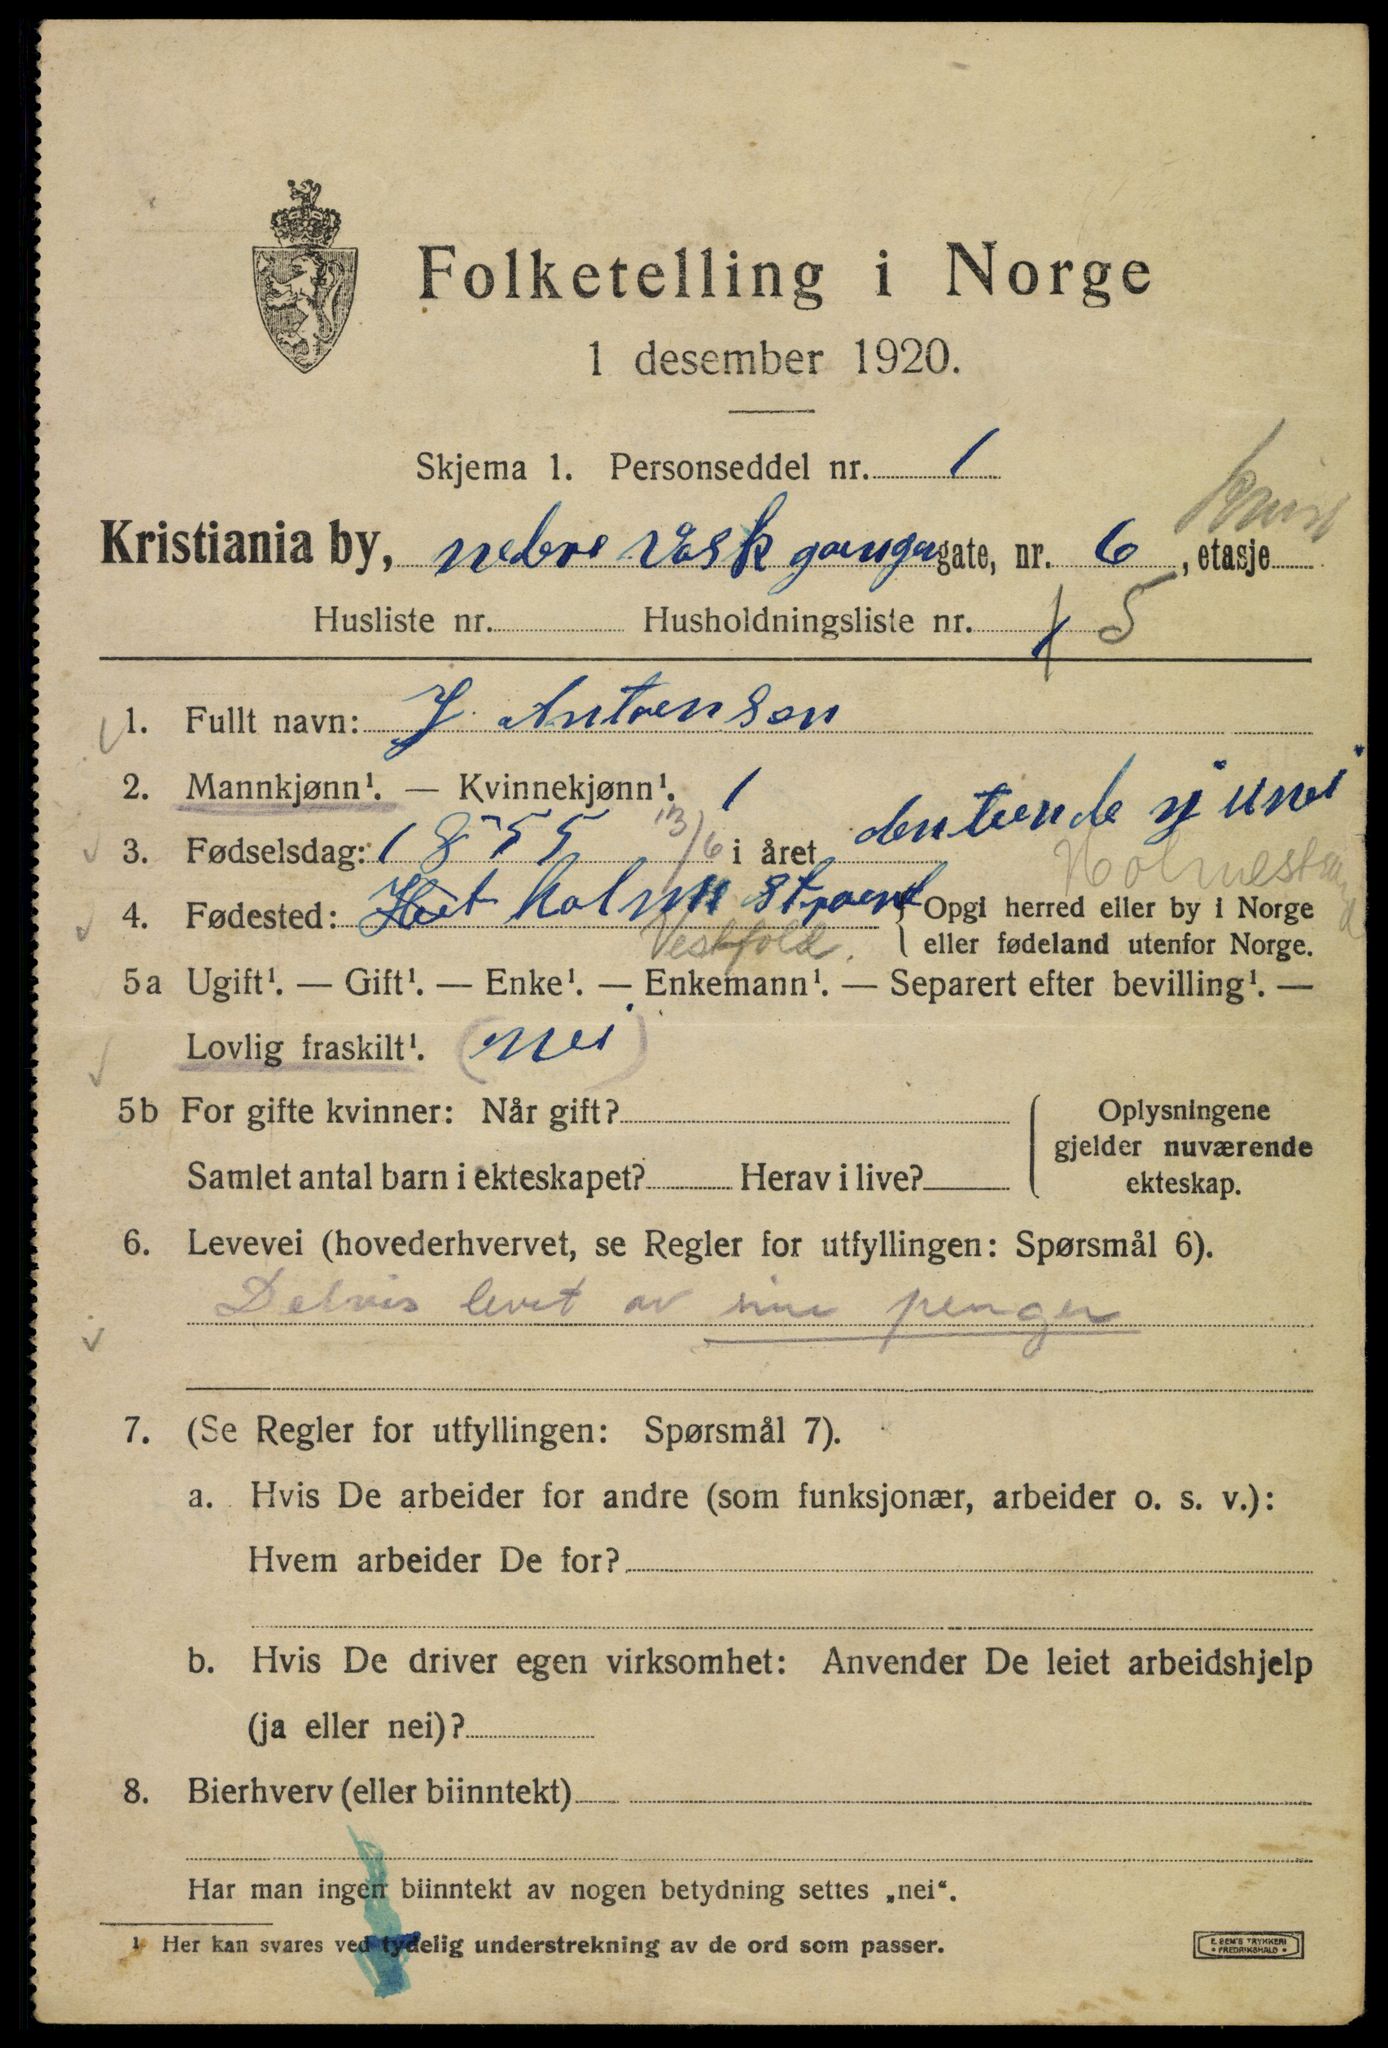 Folketelling i Norge
1 desember 1920.
Skjema 1. Personseddel nr. 1
Kristiania by, nedre Vaskgangagate, nr. 6, etasje
Husliste nr. Husholdningsliste nr. 1 5
1. Fullt navn: J. Antonsen
2. Mannkjønn¹. — Kvinnekjønn¹. 1
3. Fødselsdag: 1855 13/6 i året juni
Holmestrand
4. Fødested: Holmstrand Opgi herred eller by i Norge
Vestfold. eller fødeland utenfor Norge.
5a Ugift¹. — Gift¹. — Enke¹. — Enkemann¹. — Separert efter bevilling¹. —
Lovlig fraskilt¹. (nei)
5b For gifte kvinner: Når gift? Oplysningene
gjelder nuværende
Samlet antal barn i ekteskapet? Herav i live? ekteskap.
6. Levevei (hovederhvervet, se Regler for utfyllingen: Spørsmål 6).
Delvis levet av sine penger
7. (Se Regler for utfyllingen: Spørsmål 7).
a. Hvis De arbeider for andre (som funksjonær, arbeider o. s. v.):
Hvem arbeider De for?
b. Hvis De driver egen virksomhet: Anvender De leiet arbeidshjelp
(ja eller nei)?
8. Bierhverv (eller biinntekt)
Har man ingen biinntekt av nogen betydning settes „nei“.
1 Her kan svares ved tydelig understrekning av de ord som passer.
E. SEM'S TRYKKERI
FREDRIKSHALD